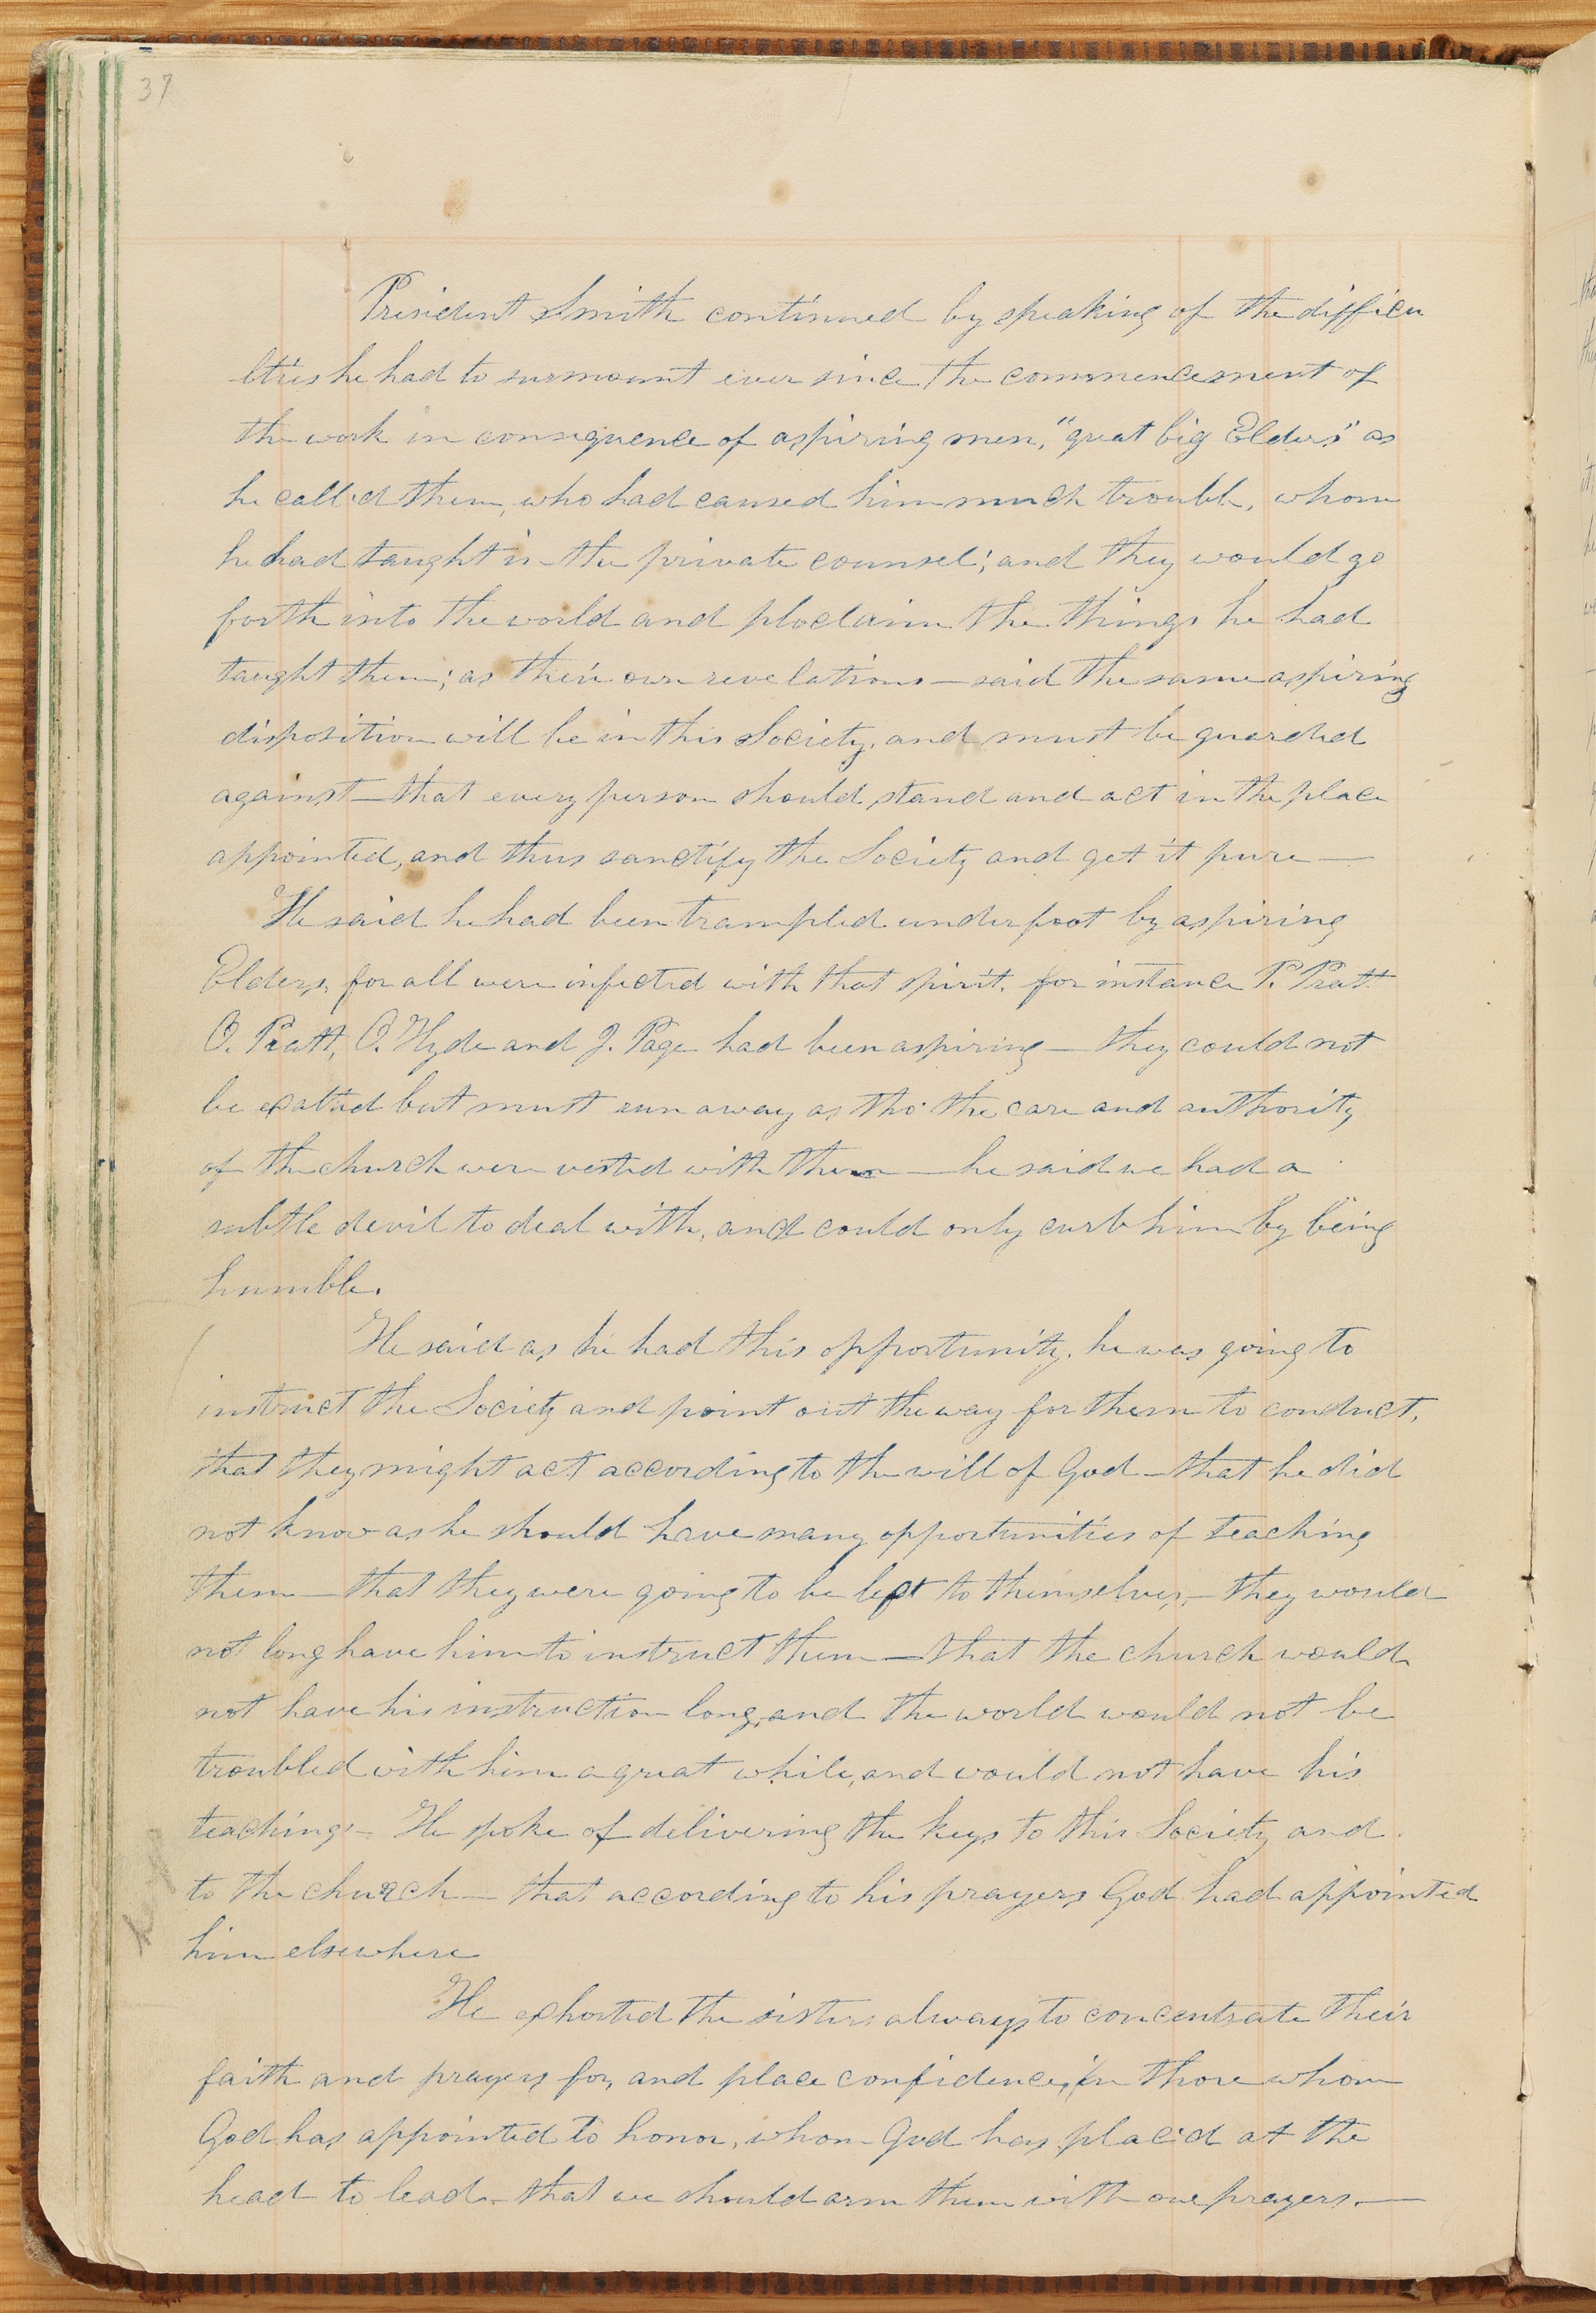 37
President Smith continued by speaking of the difficu
lties he had to surmount ever since the commencement of
the work in consequence of aspiring men, "great big Elders" as
he called them, who had caused him much trouble, whom
he had taught in the private counsel; and they would go
forth into the world and ploclaim the things he had
taught them; as their own revelations — said the same aspiring
disposition will be in this Society, and must be guarded
against — that every person should stand and act in the place
appointed, and thus sanctify the Society and get it pure —
He said he had been trampled underfoot by aspiring
Elders, for all were infected with that spirit, for instance P. Pratt
O. Pratt, O. Hyde and J. Page had been aspiring — they could not
be exalted but must run away as tho' the care and authority
of the church were vested with them — he said we had a
subtle devil to deal with, and could only curb him by being
humble.
He said as he had this opportunity, he was going to
instruct the Society and point out the way for them to conduct,
that they might act according to the will of God — that he did
not know as he should have many opportunities of teaching
them — that they were going to be left to themselves, — they would
not long have him to instruct them — that the church would
not have his instruction long, and the world would not be
troubled with him a great while, and would not have his
teachings — He spoke of delivering the keys to this Society and
to the church — that according to his prayers God had appointed
him elsewhere
He exhorted the sisters always to concentrate their
faith and prayers for, and place confidence, in those whom
God has appointed to honor, whom God has placed at the
head to lead — that we should arm them with our prayers. —